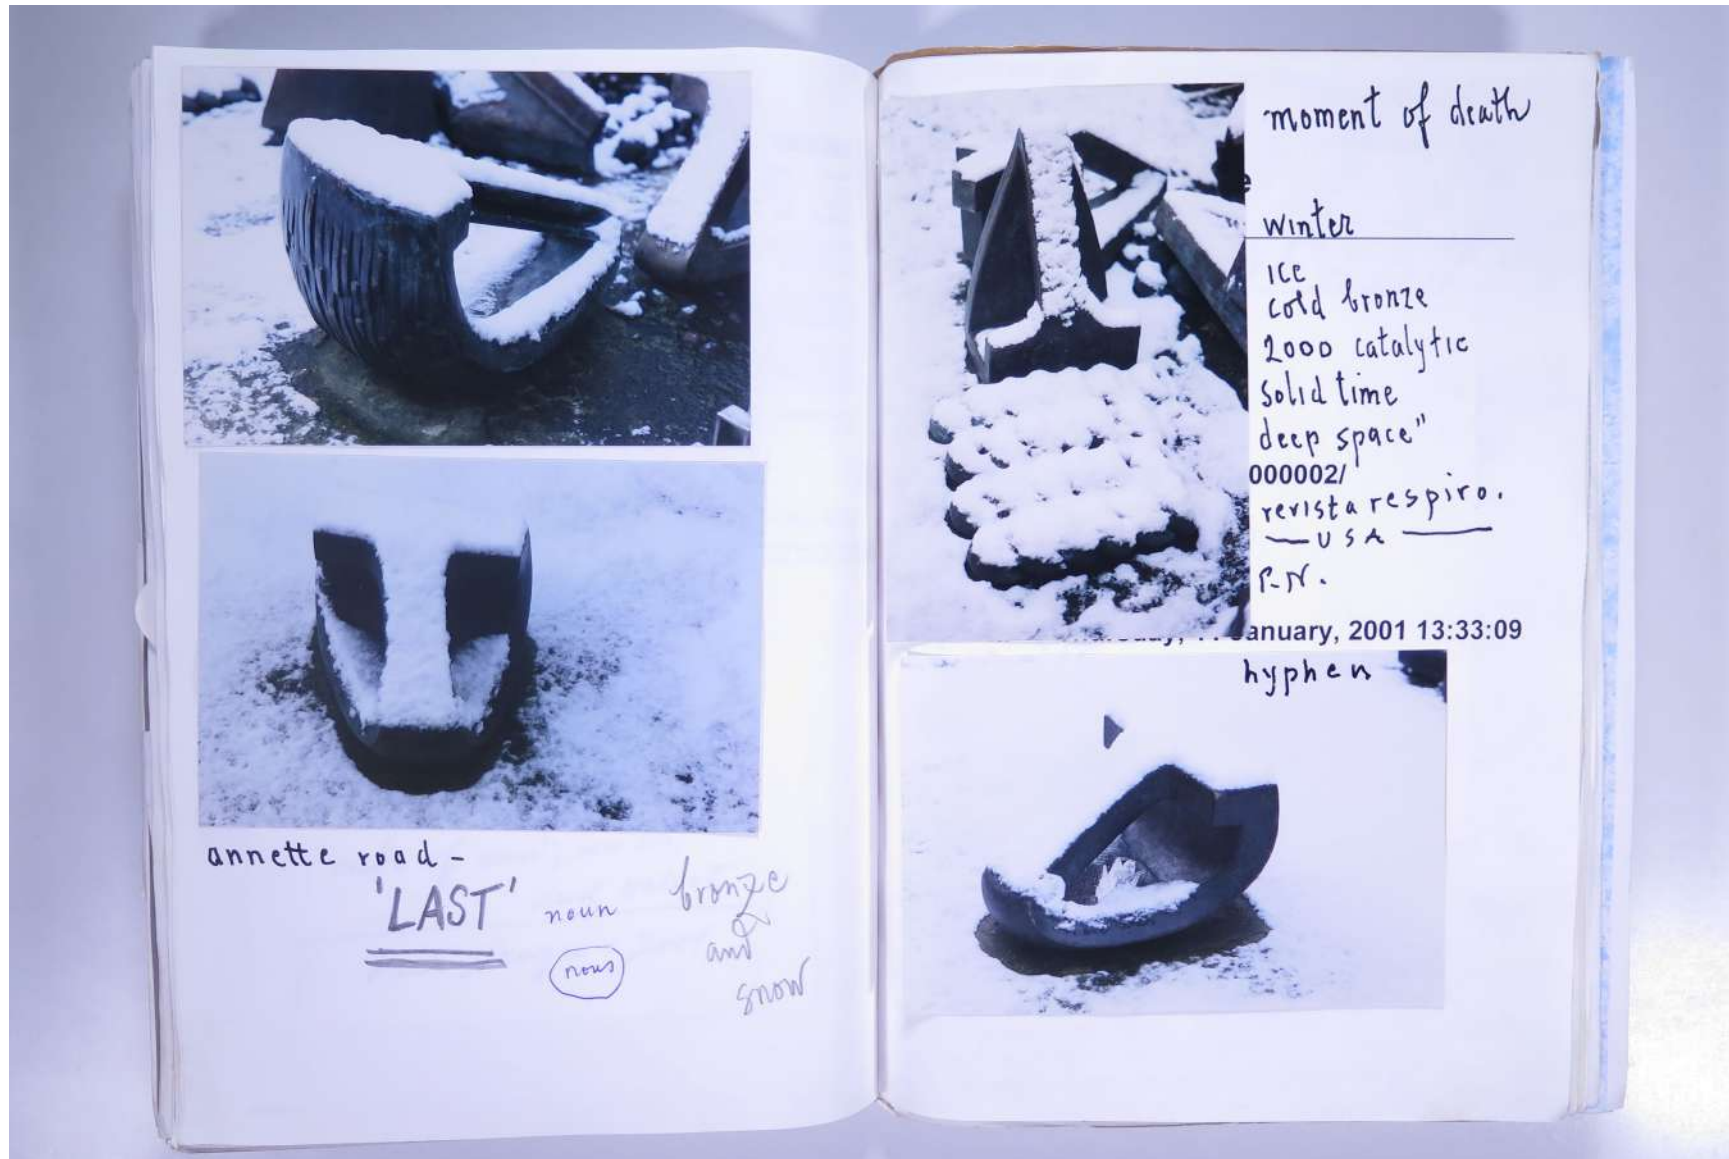 annette road -
'LAST'
noun
nous
bronze
and
snow
moment of death
winter
ice
cold bronze
2000 catalytic
solid time
deep space"
000002/
revista respiro.
— USA —
P.N.
anuary, 2001 13:33:09
hyphen